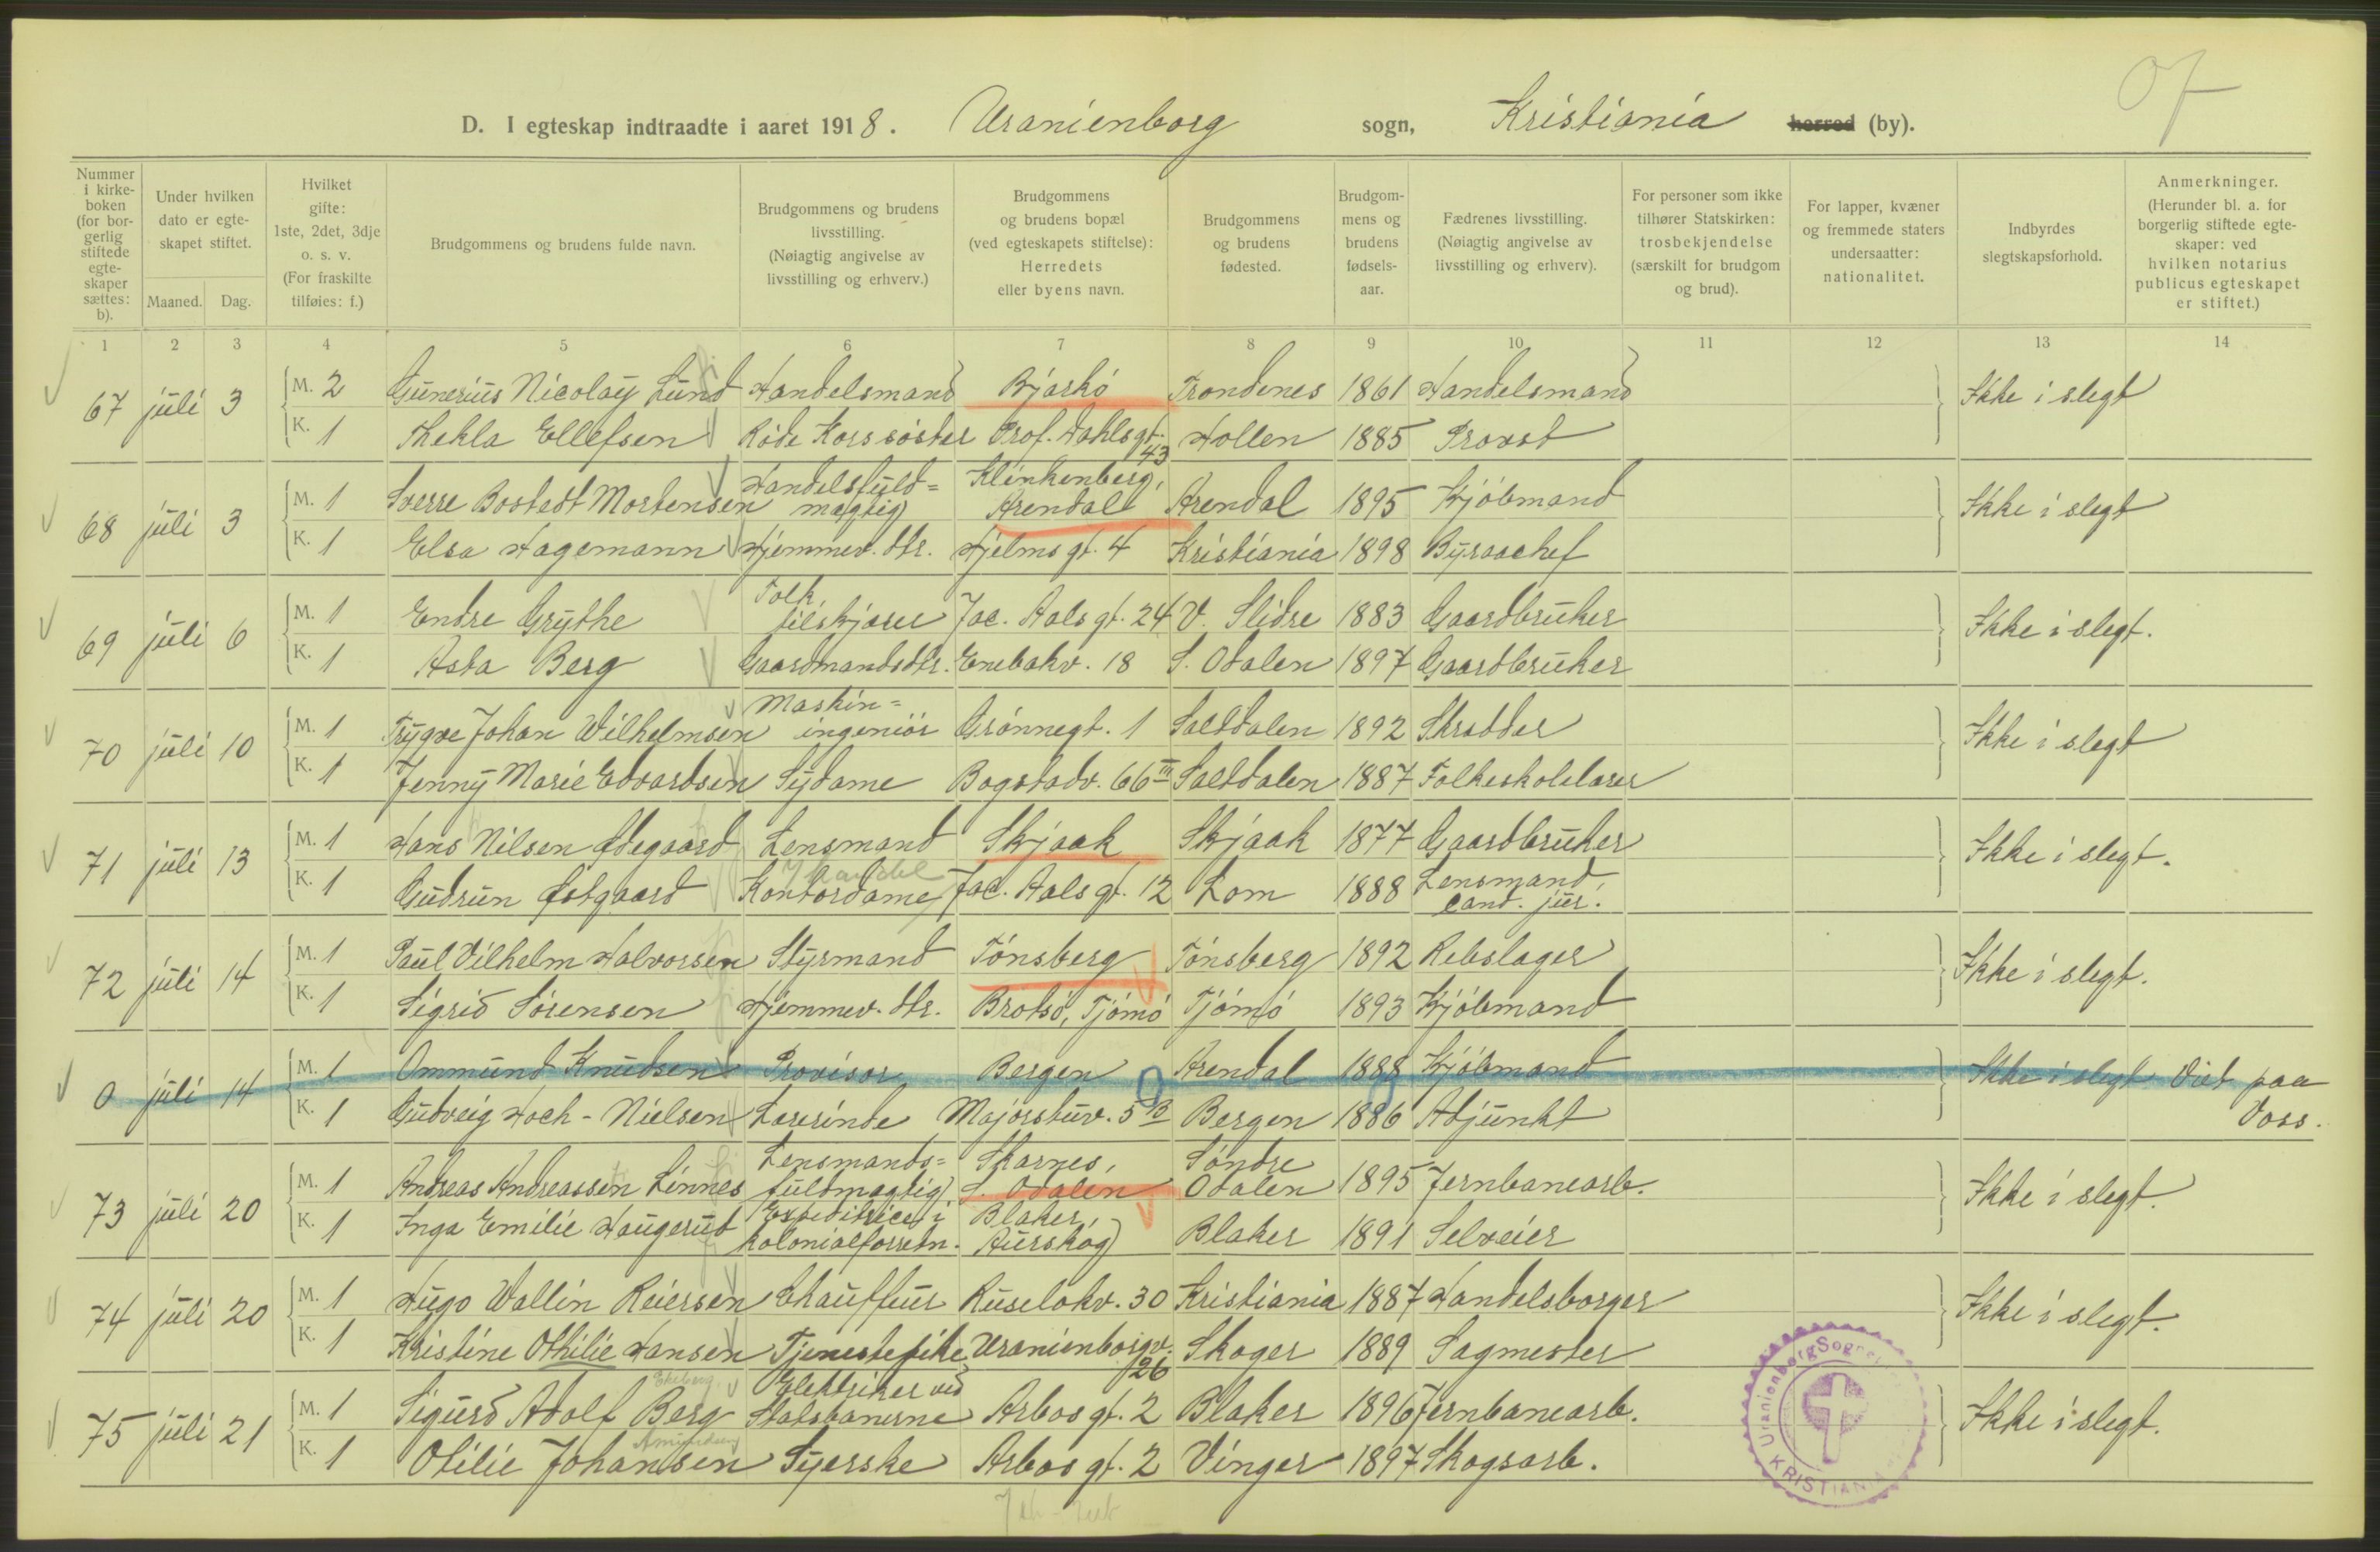 D. I egteskap indtraadte i aaret 1918. Uranienborg sogn, Kristiania herred (by).
Nummer i kirkeboken (for borgerlig stiftede egteskaper sættes: b).
Under hvilken dato er egteskapet stiftet.
Maaned. Dag.
Hvilket gifte: 1ste, 2det, 3dje o. s. v. (For fraskilte tilføies: f.)
Brudgommens og brudens fulde navn.
Brudgommens og brudens livsstilling. (Nøiagtig angivelse av livsstilling og erhverv.)
Brudgommens og brudens bopæl (ved egteskapets stiftelse): Herredets eller byens navn.
Brudgommens og brudens fødested.
Brudgommens og brudens fødselsaar.
Fædrenes livsstilling. (Nøiagtig angivelse av livsstilling og erhverv).
For personer som ikke tilhører Statskirken: trosbekjendelse (særskilt for brudgom og brud).
For lapper, kvæner og fremmede staters undersaatter: nationalitet.
Indbyrdes slegtskapsforhold.
Anmerkninger. (Herunder bl. a. for borgerlig stiftede egteskaper: ved hvilken notarius publicus egteskapet er stiftet.)
1 2 3 4 5 6 7 8 9 10 11 12 13 14
67 juli 3 M. 2 Gunerius Nicolay Lund Handelsmand Bjarkö Trondenes 1861 Handelsmand Ikke i slegt
K. 1 Thekla Ellefsen Röde Korssöster Prof. Dahlsgt. 43 Hollen 1885 Provst
68 juli 3 M. 1 Sverre Bostedt Mortensen Handelsfuld=mægtig Klinkenberg, Arendal Arendal 1895 Kjöbmand Ikke i slegt
K. 1 Elsa Hagemann Hjemmev. dtr. Hjelms gt. 4 Kristiania 1898 Byraachef
69 juli 6 M. 1 Endre Grythe Tolk, tilskjærer Jac. Aals gt. 24 V. Slidre 1883 Gaardbruker Ikke i slegt.
K. 1 Asta Berg Gaardmandsdtr. Enebakv. 18 S. Odalen 1897 Gaardbruker
70 juli 10 M. 1 Trygve Johan Wilhelmsen Maskin=ingeniör Grönnegt. 1 Saltdalen 1892 Skrædder Ikke i slegt
K. 1 Jenny Marie Edvardsen Sydame Bogstadv. 66 III Saltdalen 1887 Folkeskolelærer
71 juli 13 M. 1 Hans Nilsen Ødegaard Lensmand Skjaak Skjaak 1877 Gaardbruker Ikke i slegt.
K. 1 Gudrun Østgaard Kontordame Jac. Aals gt. 12 Lom 1888 Lensmand, cand. jur.
72 juli 14 M. 1 Paul Vilhelm Halvorsen Styrmand Tönsberg Tönsberg 1892 Rebslager Ikke i slegt.
K. 1 Sigrid Sörensen Hjemmev. dtr. Brötsö, Tjömö Tjömö 1893 Kjöbmand
0 juli 14 M. 1 Ommund Knudsen Provisor Bergen Arendal 1888 Kjöbmand Ikke i slegt Viet paa Voss.
K. 1 Gudveig Hoch-Nielsen Lærerinde Majorstuv. 5 B Bergen 1886 Adjunkt
73 juli 20 M. 1 Andreas Andreassen Linnes Lensmands=fuldmægtig Skarnes, S. Odalen Söndre Odalen 1895 Jernbanearb. Ikke i slegt.
K. 1 Inga Emilie Haugerud Expeditrice i kolonialforretn. Blaker, Aurskog Blaker 1891 Selveier
74 juli 20 M. 1 Hugo Wallin Reiersen Chauffeur Ruselökv. 30 Kristiania 1887 Handelsborger Ikke i slegt.
K. 1 Kristine Othilie Hansen Tjenestepike Uranienborgv. 26 Skoger 1889 Sagmester
75 juli 21 M. 1 Sigurd Adolf Berg Elektriker ved Statsbanerne Arbos gt. 2 Blaker 1896 Jernbanearb. Ikke i slegt.
K. 1 Otilie Johansen Syerske Arbos gt. 2 Vinger 1897 Skogsarb.
Uranienborg Sogn
KRISTIANIA